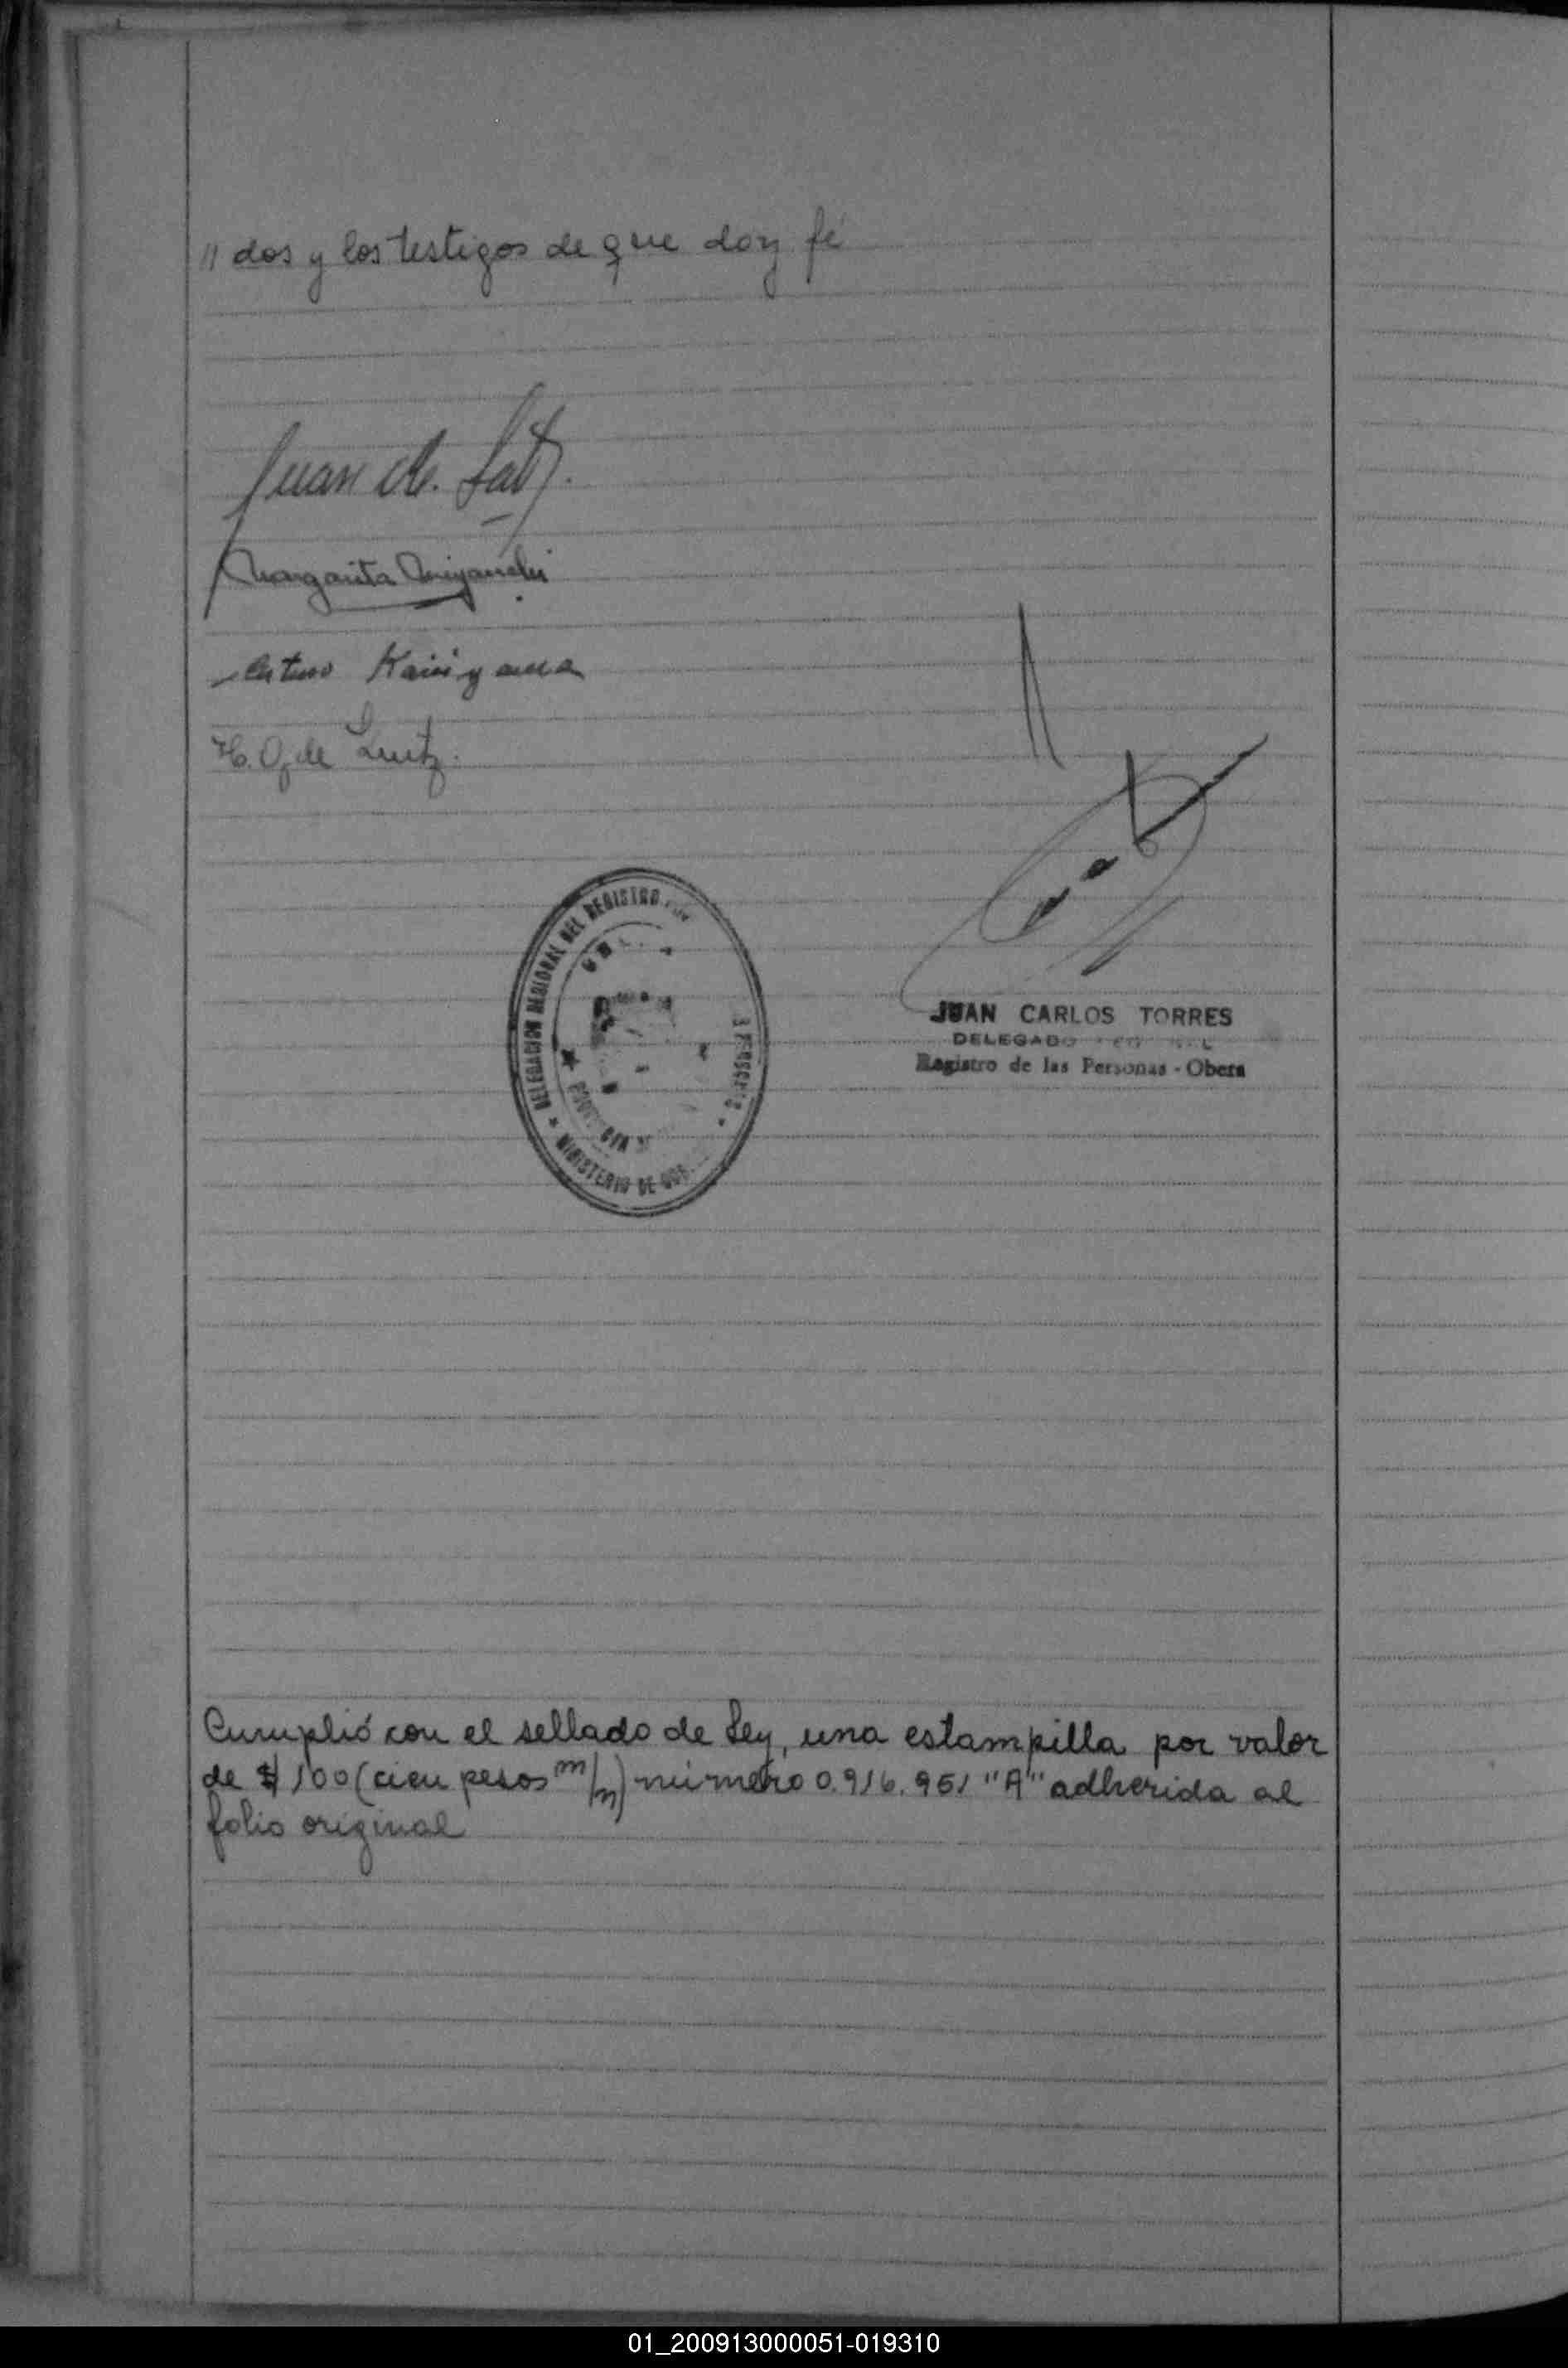 // dos y los testigos de que doy fé
Juan
Margarita
Arturo
H. O. de Lutz.
DELEGACION REGIONAL DEL REGISTRO
MINISTERIO DE
JUAN CARLOS TORRES
DELEGADO
Registro de las Personas - Obera
Cumplió con el sellado de Ley, una estampilla por valor
de $ 100 (cien pesos m/n) número 0.916.951 "A" adherida al
folio original
01_200913000051-019310